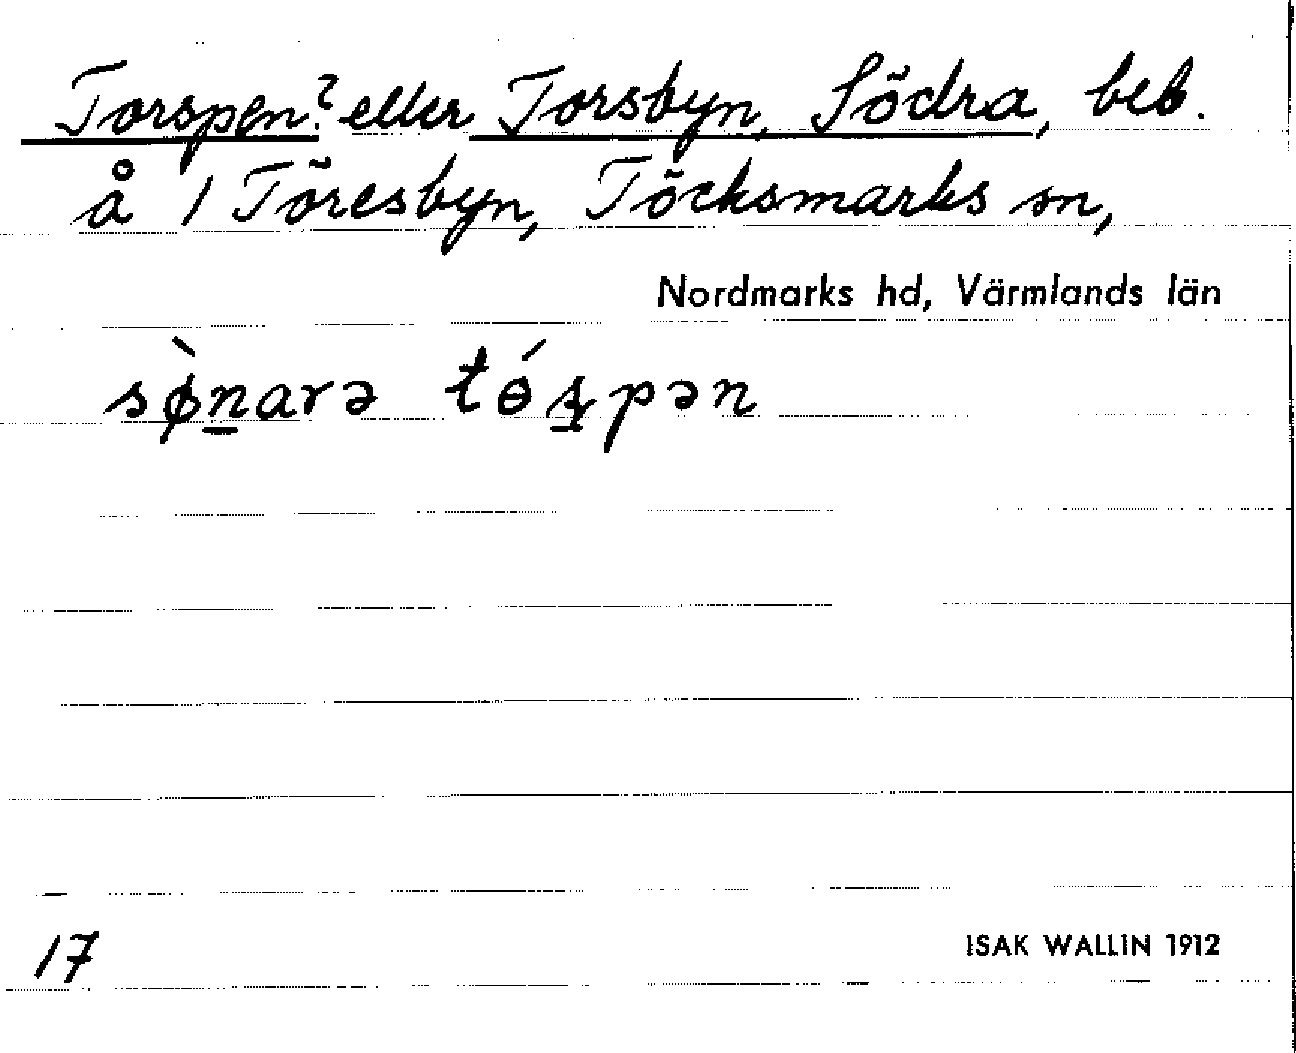 Torspen? eller Torsbyn, Södra, beb.
å 1 Töresbyn, Töcksmarks sn,
Nordmarks hd, Värmlands län
sø̀n̲arə tɵ́s̲pən
17
ISAK WALLIN 1912